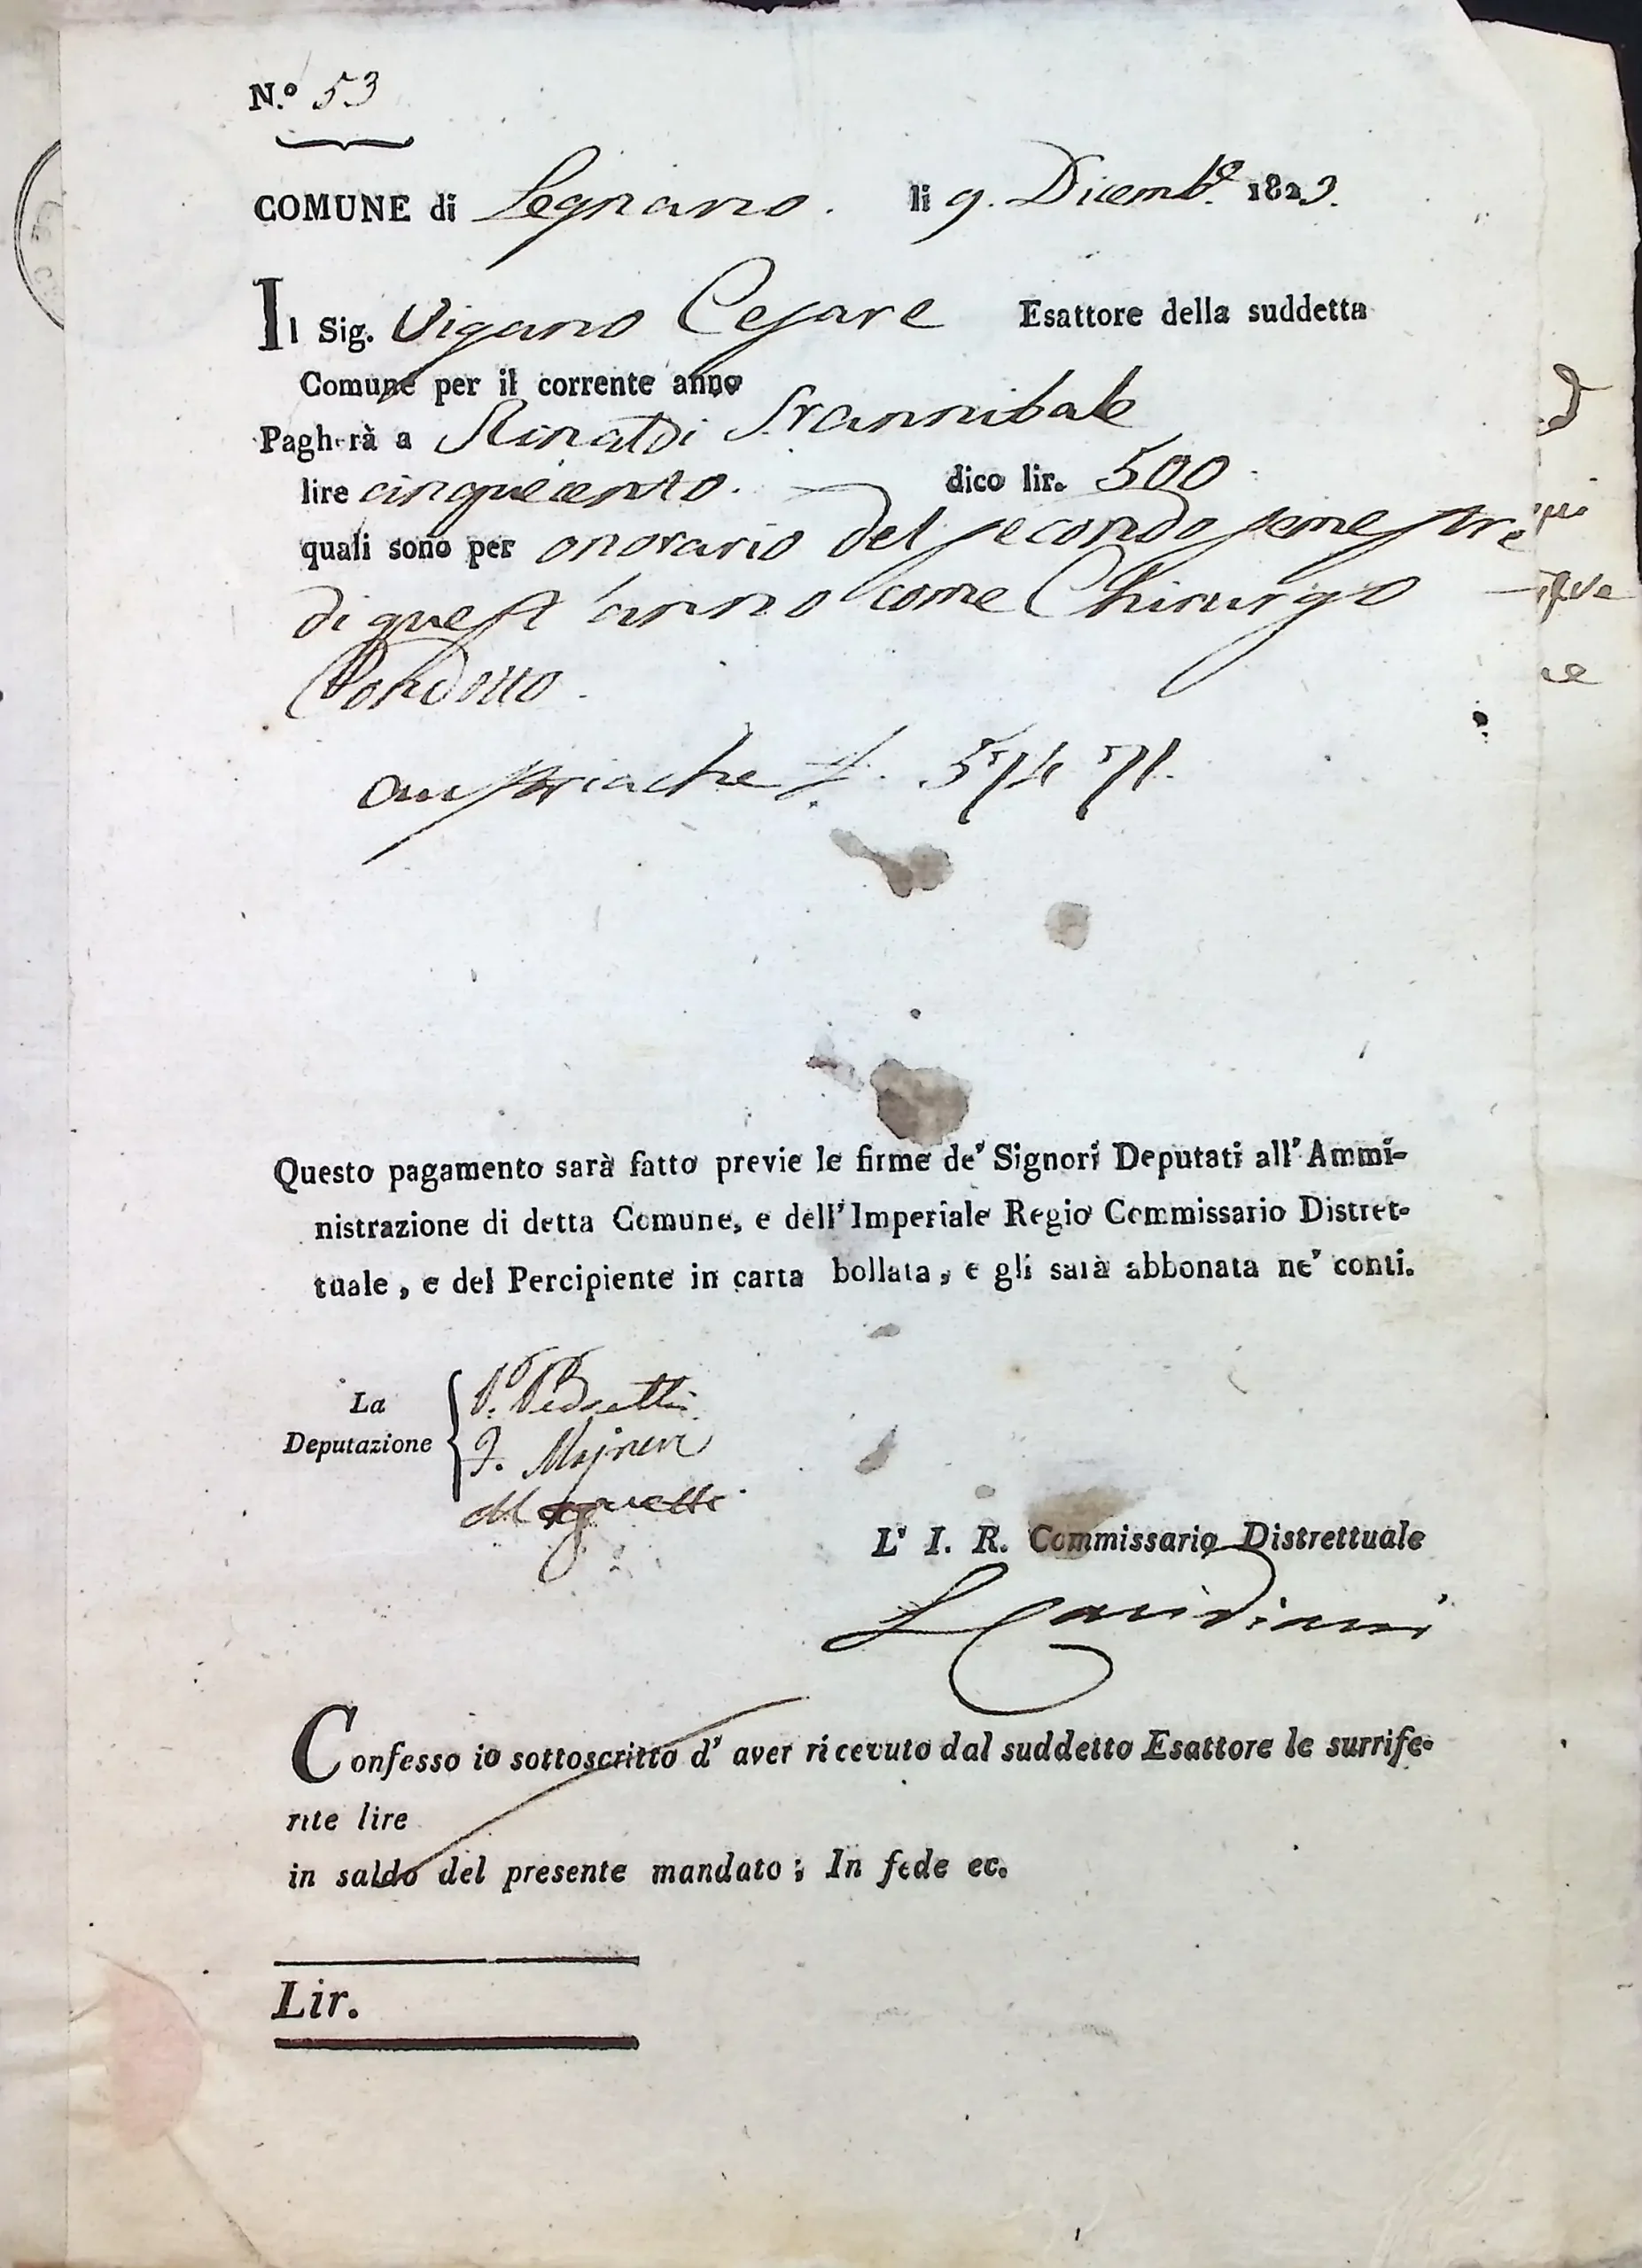 N.º 53
COMUNE di Legnano. li 9. Dicemb.e 1823.
Il Sig. Vigano Cesare Esattore della suddetta
Comune per il corrente anno
Pagherà a Rinaldi Srannibale
lire cinquecento. dico lir. 500
quali sono per onorario del secondo semestre
di quest'anno come Chirurgo
Condotto.
austriache £. 574 71.
Questo pagamento sarà fatto previe le firme de' Signori Deputati all' Ammi-
nistrazione di detta Comune, e dell' Imperiale Regio Commissario Distret-
tuale, e del Percipiente in carta bollata, e gli sarà abbonata ne' conti.
La
Deputazione
L' I. R. Commissario Distrettuale
Confesso io sottoscritto d' aver ricevuto dal suddetto Esattore le surrife-
rite lire
in saldo del presente mandato; In fede ec.
Lir.